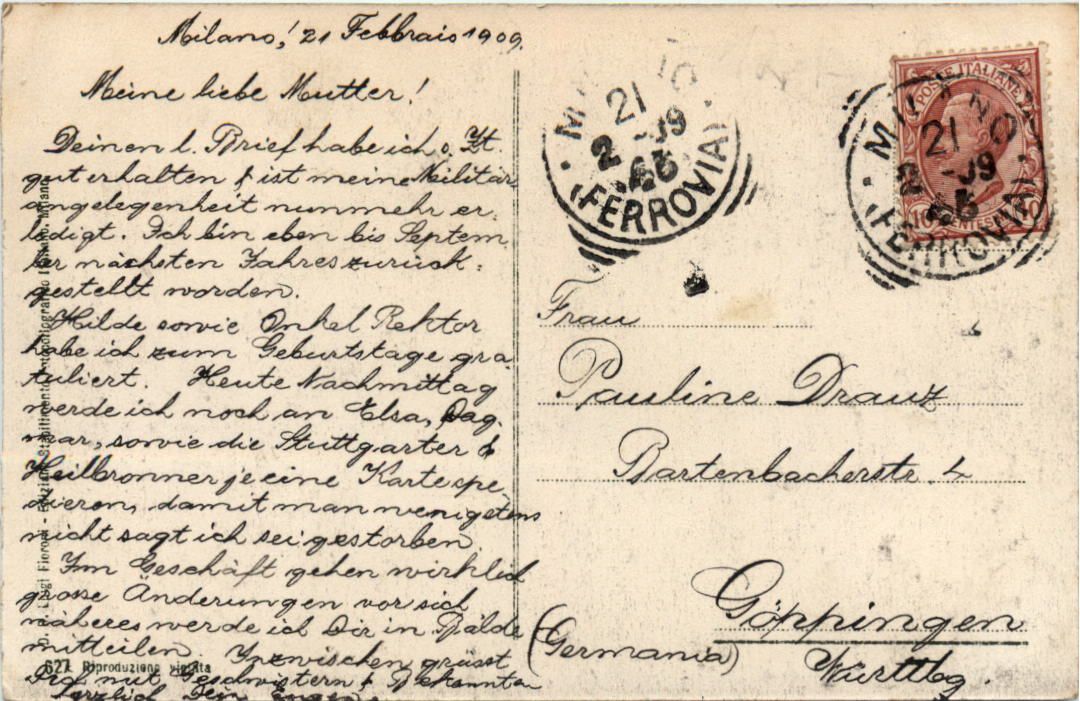 Milano, 21 Febbraio 1909.
Meine liebe Mutter!
Deinen l. Brief habe ich s. Zt.
gut erhalten & ist meine Militär
angelegenheit nunmehr er-
ledigt. Ich bin eben bis Septem
ber nächsten Jahres zurück-
gestellt worden.
Hilde sowie Onkel Rektor
habe ich zum Geburtstage gra-
tuliert. Heute Nachmittag
werde ich noch an Elsa, Dag-
mar, sowie die Stuttgarter &
Heilbronner je eine Karte spe-
dieren, damit man wenigstens
nicht sagt ich sei gestorben.
Im Geschäft gehen wirklich
grosse Änderungen vor sich
näheres werde ich Dir in Bälde
mitteilen. Inzwischen grüsst
Dich mit Geschwistern & Bekannten
herzlich Dein Eugen
Luigi Fieroni - Milano
627 Riproduzione vietata
21
2 -09
(FERROVIA)
POSTE ITALIANE
MILANO
21
2 -09
(FERROVIA)
Frau
Pauline Drauz
Bartenbacherstr. 4
Göppingen
(Germania)
Württbg.